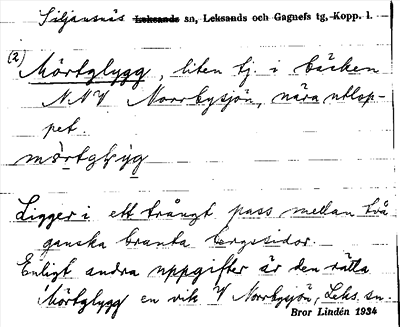 Siljansnäs Leksands sn, Leksands och Gagnefs tg, Kopp. l.
(2)
Mörtglygg, liten tj. i bäcken
NNV Norrbysjön, nära utlop-
pet.
mörtglyg
Ligger i ett trångt pass mellan två
ganska branta bergssidor.
Enligt andra uppgifter är den rätta
Mörtglygg en vik V Norrbysjön, Leks. sn.
Bror Lindén 1934